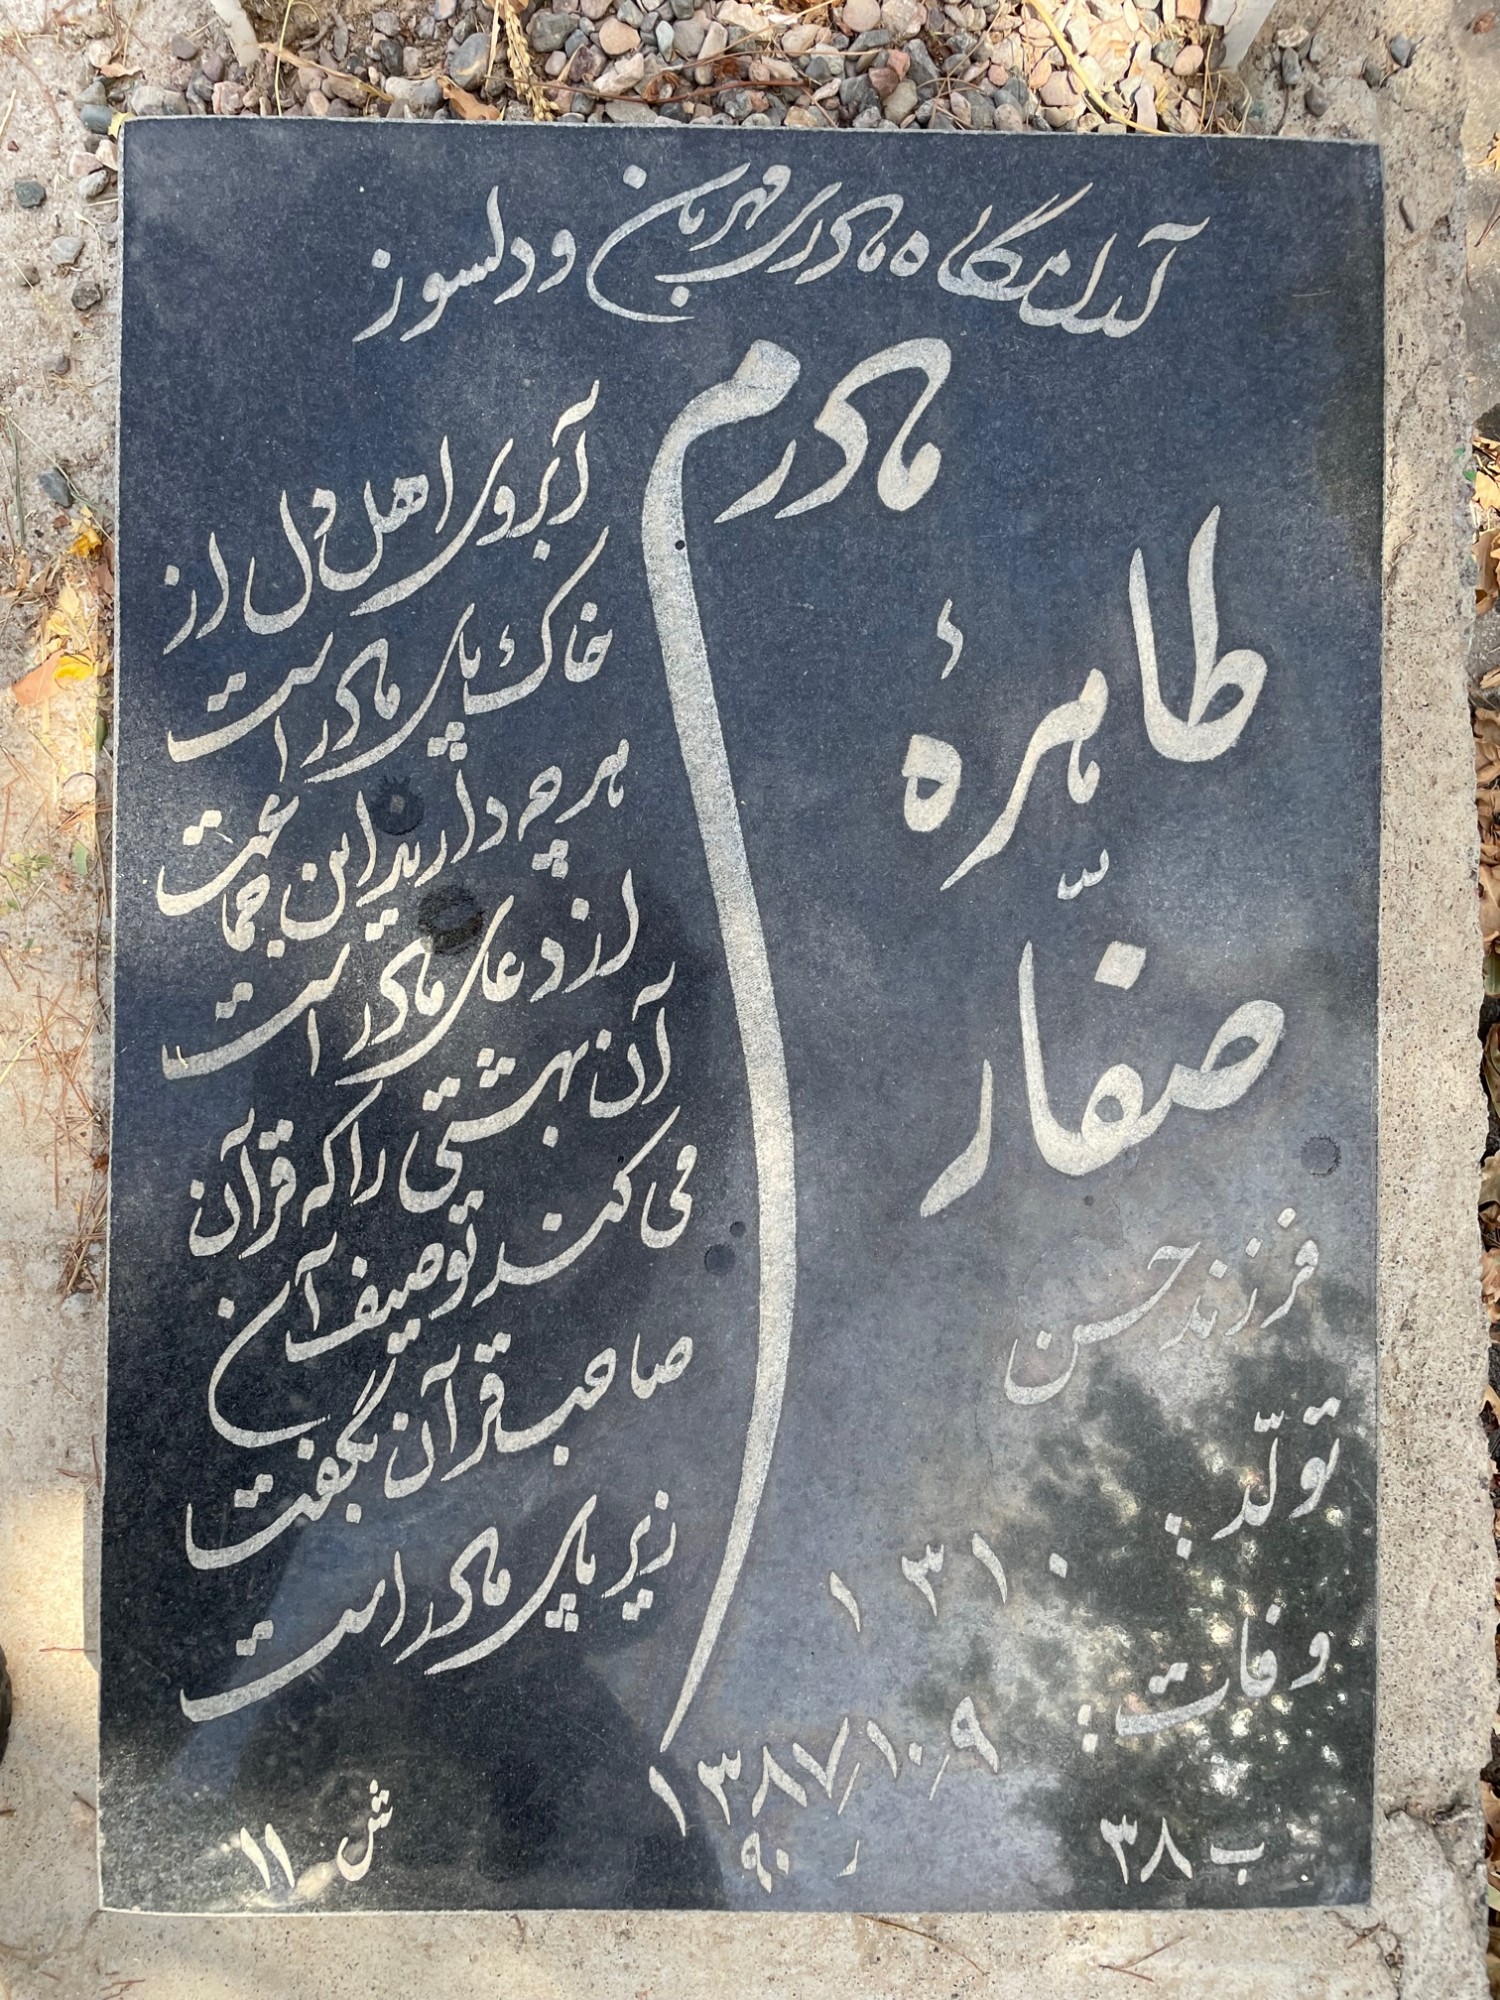 آرامگاه مادری مهربان و دلسوز
مادرم
طاهرهٔ
صفّار
فرزند حسن
تولّد:
۱۳۱۰
وفات:
۱۳۸۷/۱۰/۹
آبروی اهل دل از
خاک پای مادر است
هر چه دارید این جماعت
از دعای مادر است
آن بهشتی را که قرآن
می کند توصیف آن
صاحب قرآن بگفت
زیر پای مادر است
ب ۳۸
ر ۹۰
ش ۱۱